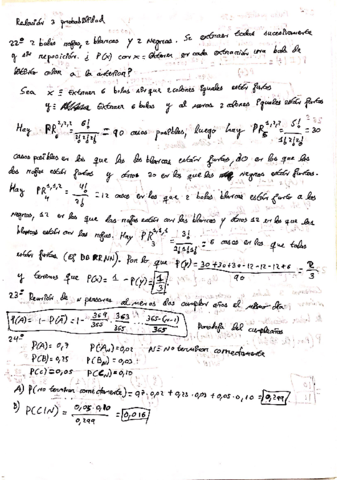 Relación 3 probabilidad
22º 2 bolas rojas, 2 blancas y 2 negras. Se extraen todas sucesivamente
y sin reposición. ¿ P(x) con x = obtener en cada extracción una bola de
color a la anterior?
Sea x ≡ extraer 6 bolas sin que 2 colores iguales estén juntos
y = extraer 6 bolas y al menos 2 colores iguales estén juntos
Hay PR 2,2,2 6 = 6! / 2! 2! 2! = 90 casos posibles, luego hay PR 1,2,2 5 = 5! / 1! 2! 2! = 30
casos posibles en los que las blancas están juntas, 30 en los que las
dos rojas están juntas y otros 30 en los que las negras están juntas.
Hay PR 4 = 4! / 2! = 12 casos en los que 2 bolas blancas están junto a las
negras, 12 en los que las rojas están con las blancas y otros 12 en los que las
blancas están con las rojas. Hay PR 1,1,1 3 = 3! / 1! 1! 1! = 6 casos en los que todas
están juntas Por lo que P(y) = 30+30+30-12-12-12+6 / 90 = 2/3
y tenemos que P(x) = 1 - P(y) = 1/3
23º Reunión de n personas al menos dos cumplen años el mismo día
P(A) = 1 - P(Ā) = 1 - 364/365 · 363/365 365-(n-1)/365 Paradoja del cumpleaños
24º
P(A) = 0,7 P(A_N) = 0,02 N ≡ No terminan correctamente
P(B) = 0,25 P(B_N) = 0,03
P(C) = 0,05 P(C_N) = 0,10
A) P(no terminan correctamente) = 0,7·0,02 + 0,25·0,03 + 0,05·0,10 = 0,299
B) P(C|N) = 0,05·0,10 / 0,299 = 0,016